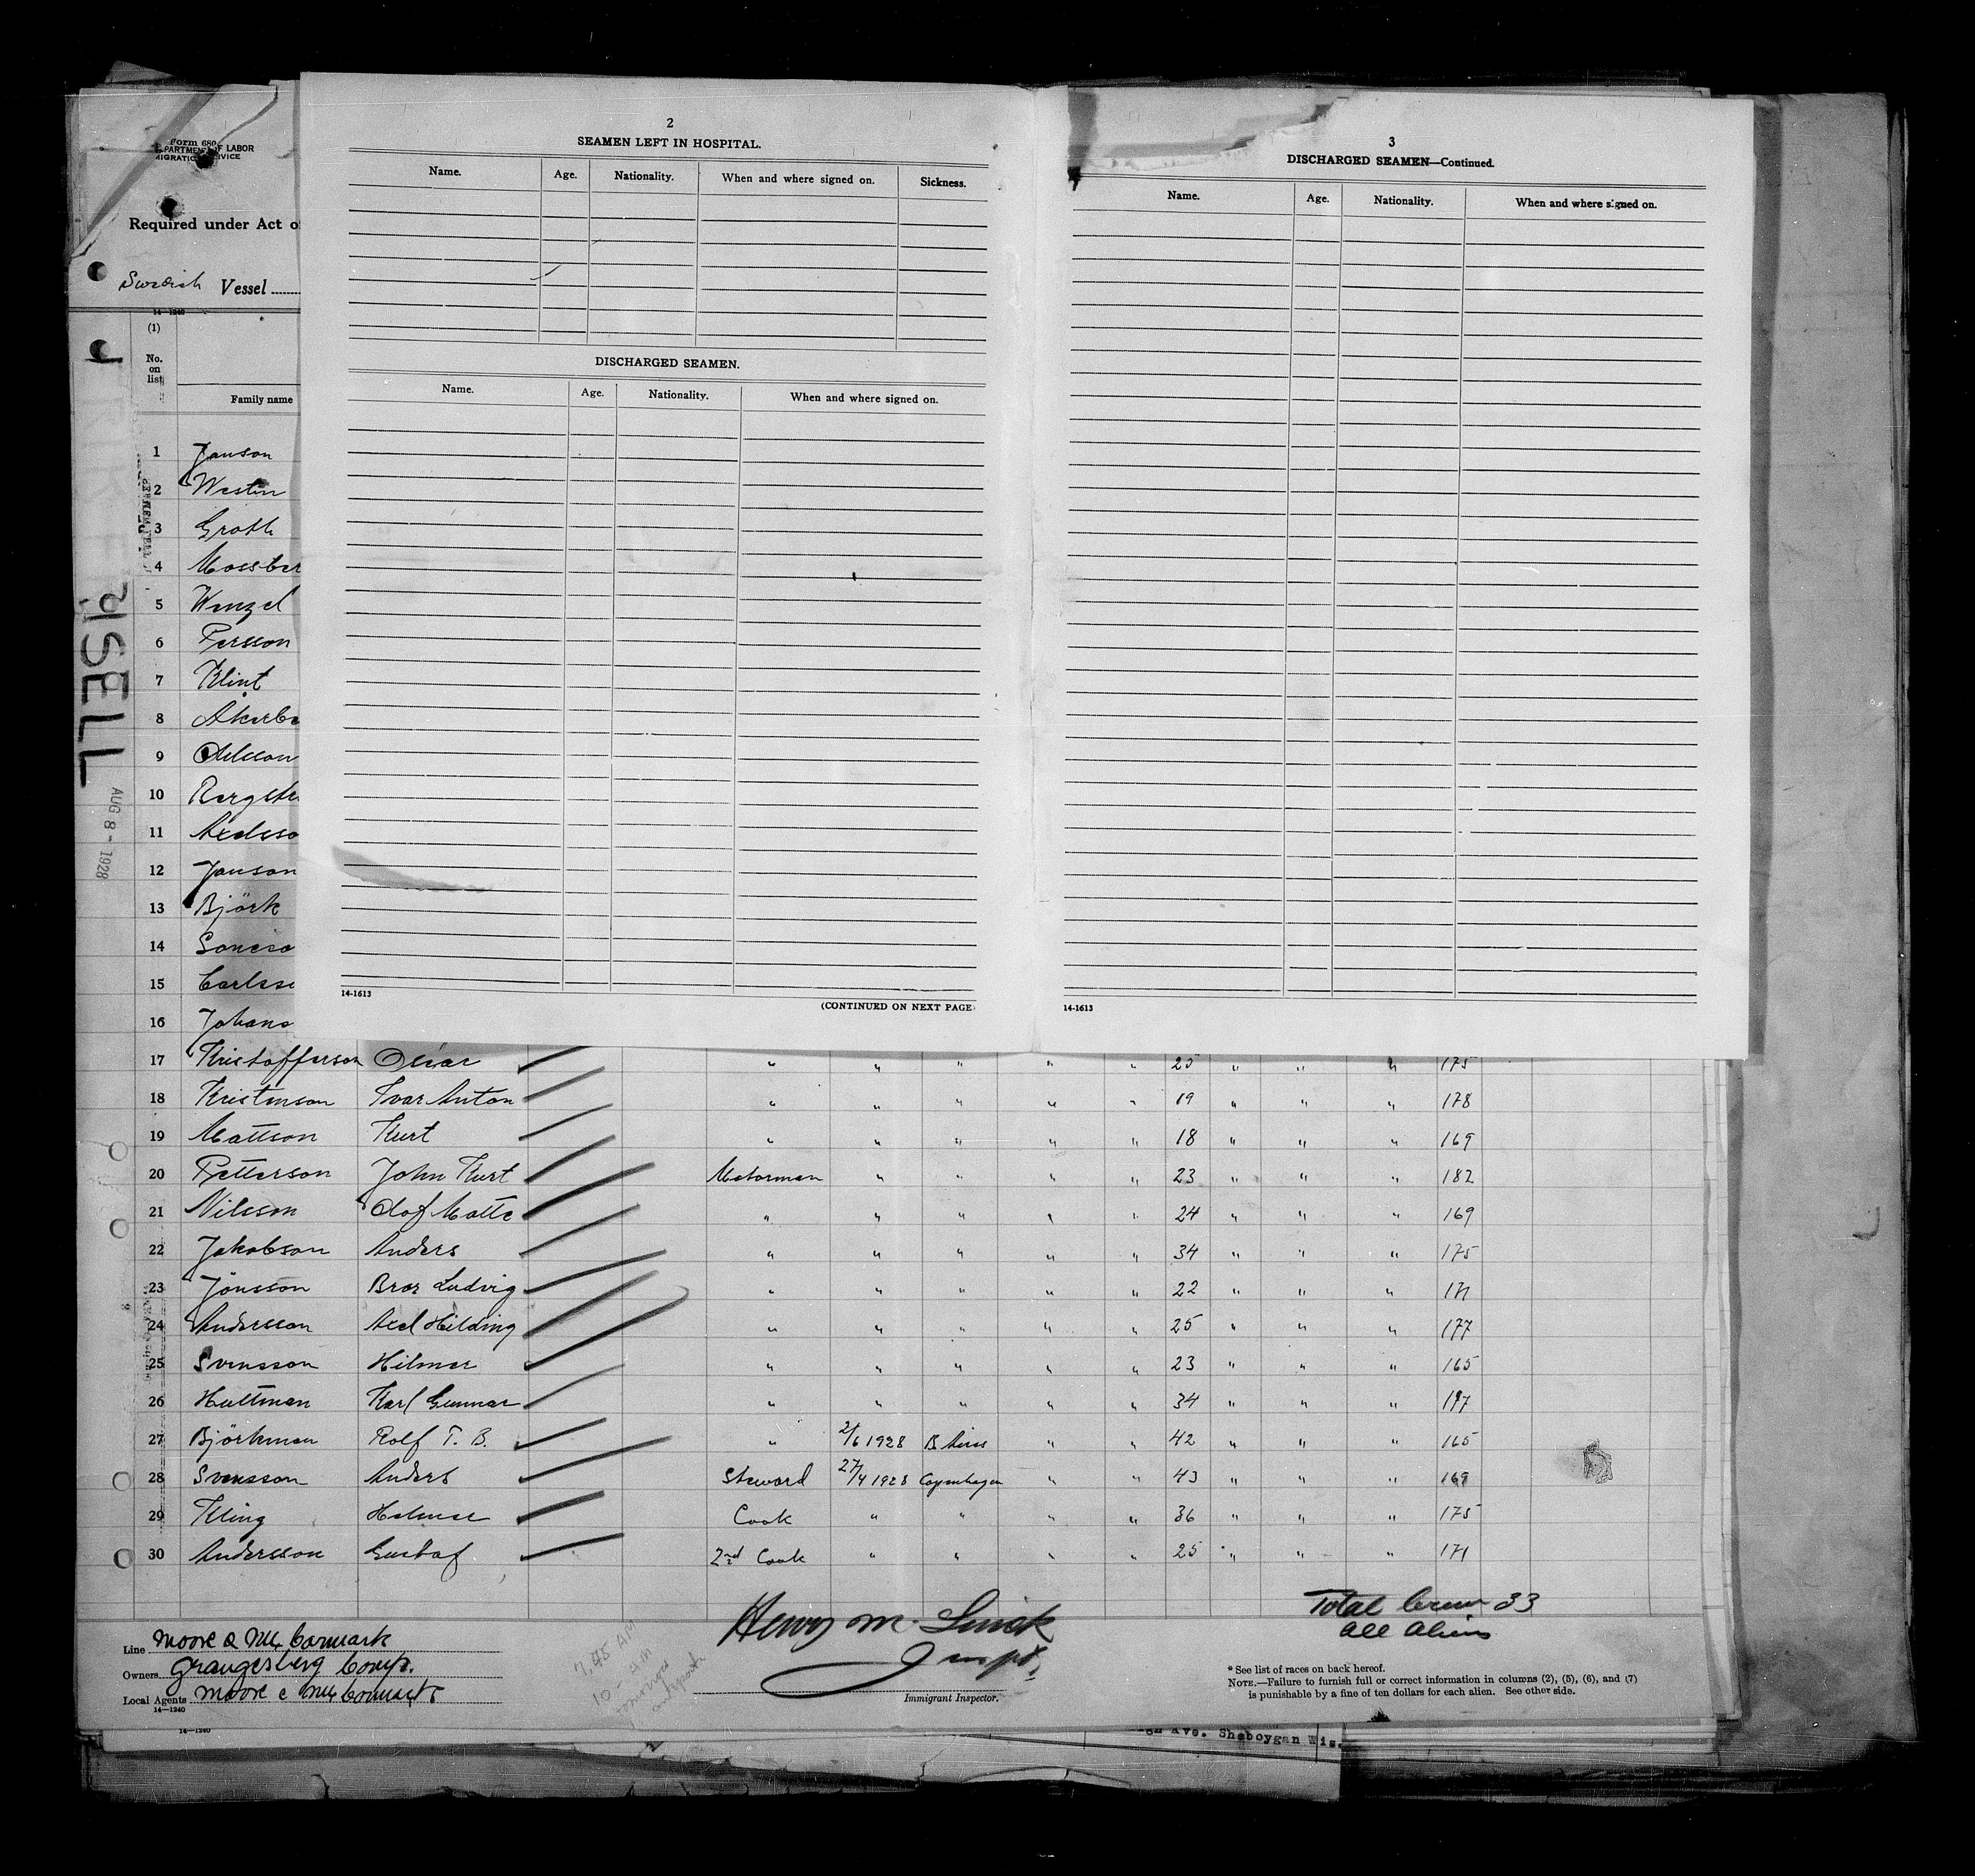 Form 680
DEPARTMENT OF LABOR
IMMIGRATION SERVICE
Required under Act of
Swedish Vessel
14—1240
(1)
No. on list
Family name
1 Janson
2 Westin
3 Groth
4 Mossber
5 Wenzel
6 Persson
7 Klint
8 Akerbe
9 Ohlsson
10 Bergstr
11 Axelsso
12 Janson
13 Björk
14
15 Carlss
16 Johans
2
SEAMEN LEFT IN HOSPITAL.
Name. Age. Nationality. When and where signed on. Sickness.
DISCHARGED SEAMEN.
Name. Age. Nationality. When and where signed on.
14-1613
(CONTINUED ON NEXT PAGE)
3
DISCHARGED SEAMEN—Continued.
Name. Age. Nationality. When and where signed on.
14-1613
17 Kristofferson Oscar " " " " " 25 " " " 175
18 Kristenson Ivar Anton " " " " " 19 " " " 178
19 Mattson Kurt " " " " " 18 " " " 169
20 Petterson John Kurt Motorman " " " " 23 " " " 182
21 Nilsson Olof Matte " " " " " 24 " " " 169
22 Jakobson Anders " " " " " 34 " " " 175
23 Jönsson Bror Ludvig " " " " " 22 " " " 171
24 Andersson Axel Hilding " " " " " 25 " " " 177
25 Svensson Hilmer " " " " " 23 " " " 165
26 Hultman Karl Gunnar " " " " " 34 " " " 177
27 Björkman Rolf T. B. " 2/6 1928 B Aires " " 42 " " " 165
28 Svensson Anders Steward 27/4 1928 Copenhagen " " 43 " " " 169
29 Kling Helmer Cook " " " " 36 " " " 175
30 Andersson Gustaf 2nd Cook " " " " 25 " " " 171
AUG 8 - 1928
Total Crew 33
all aliens
Line Moore & McCormack
Owners Grangesberg Comp.
Local Agents Moore & McCormack
14—1240
7.45 AM
10 - AM
Henry M.
Inspt.
Immigrant Inspector.
* See list of races on back hereof.
NOTE.—Failure to furnish full or correct information in columns (2), (5), (6), and (7)
is punishable by a fine of ten dollars for each alien. See other side.
14—1240
Ave. Sheboygan Wis.